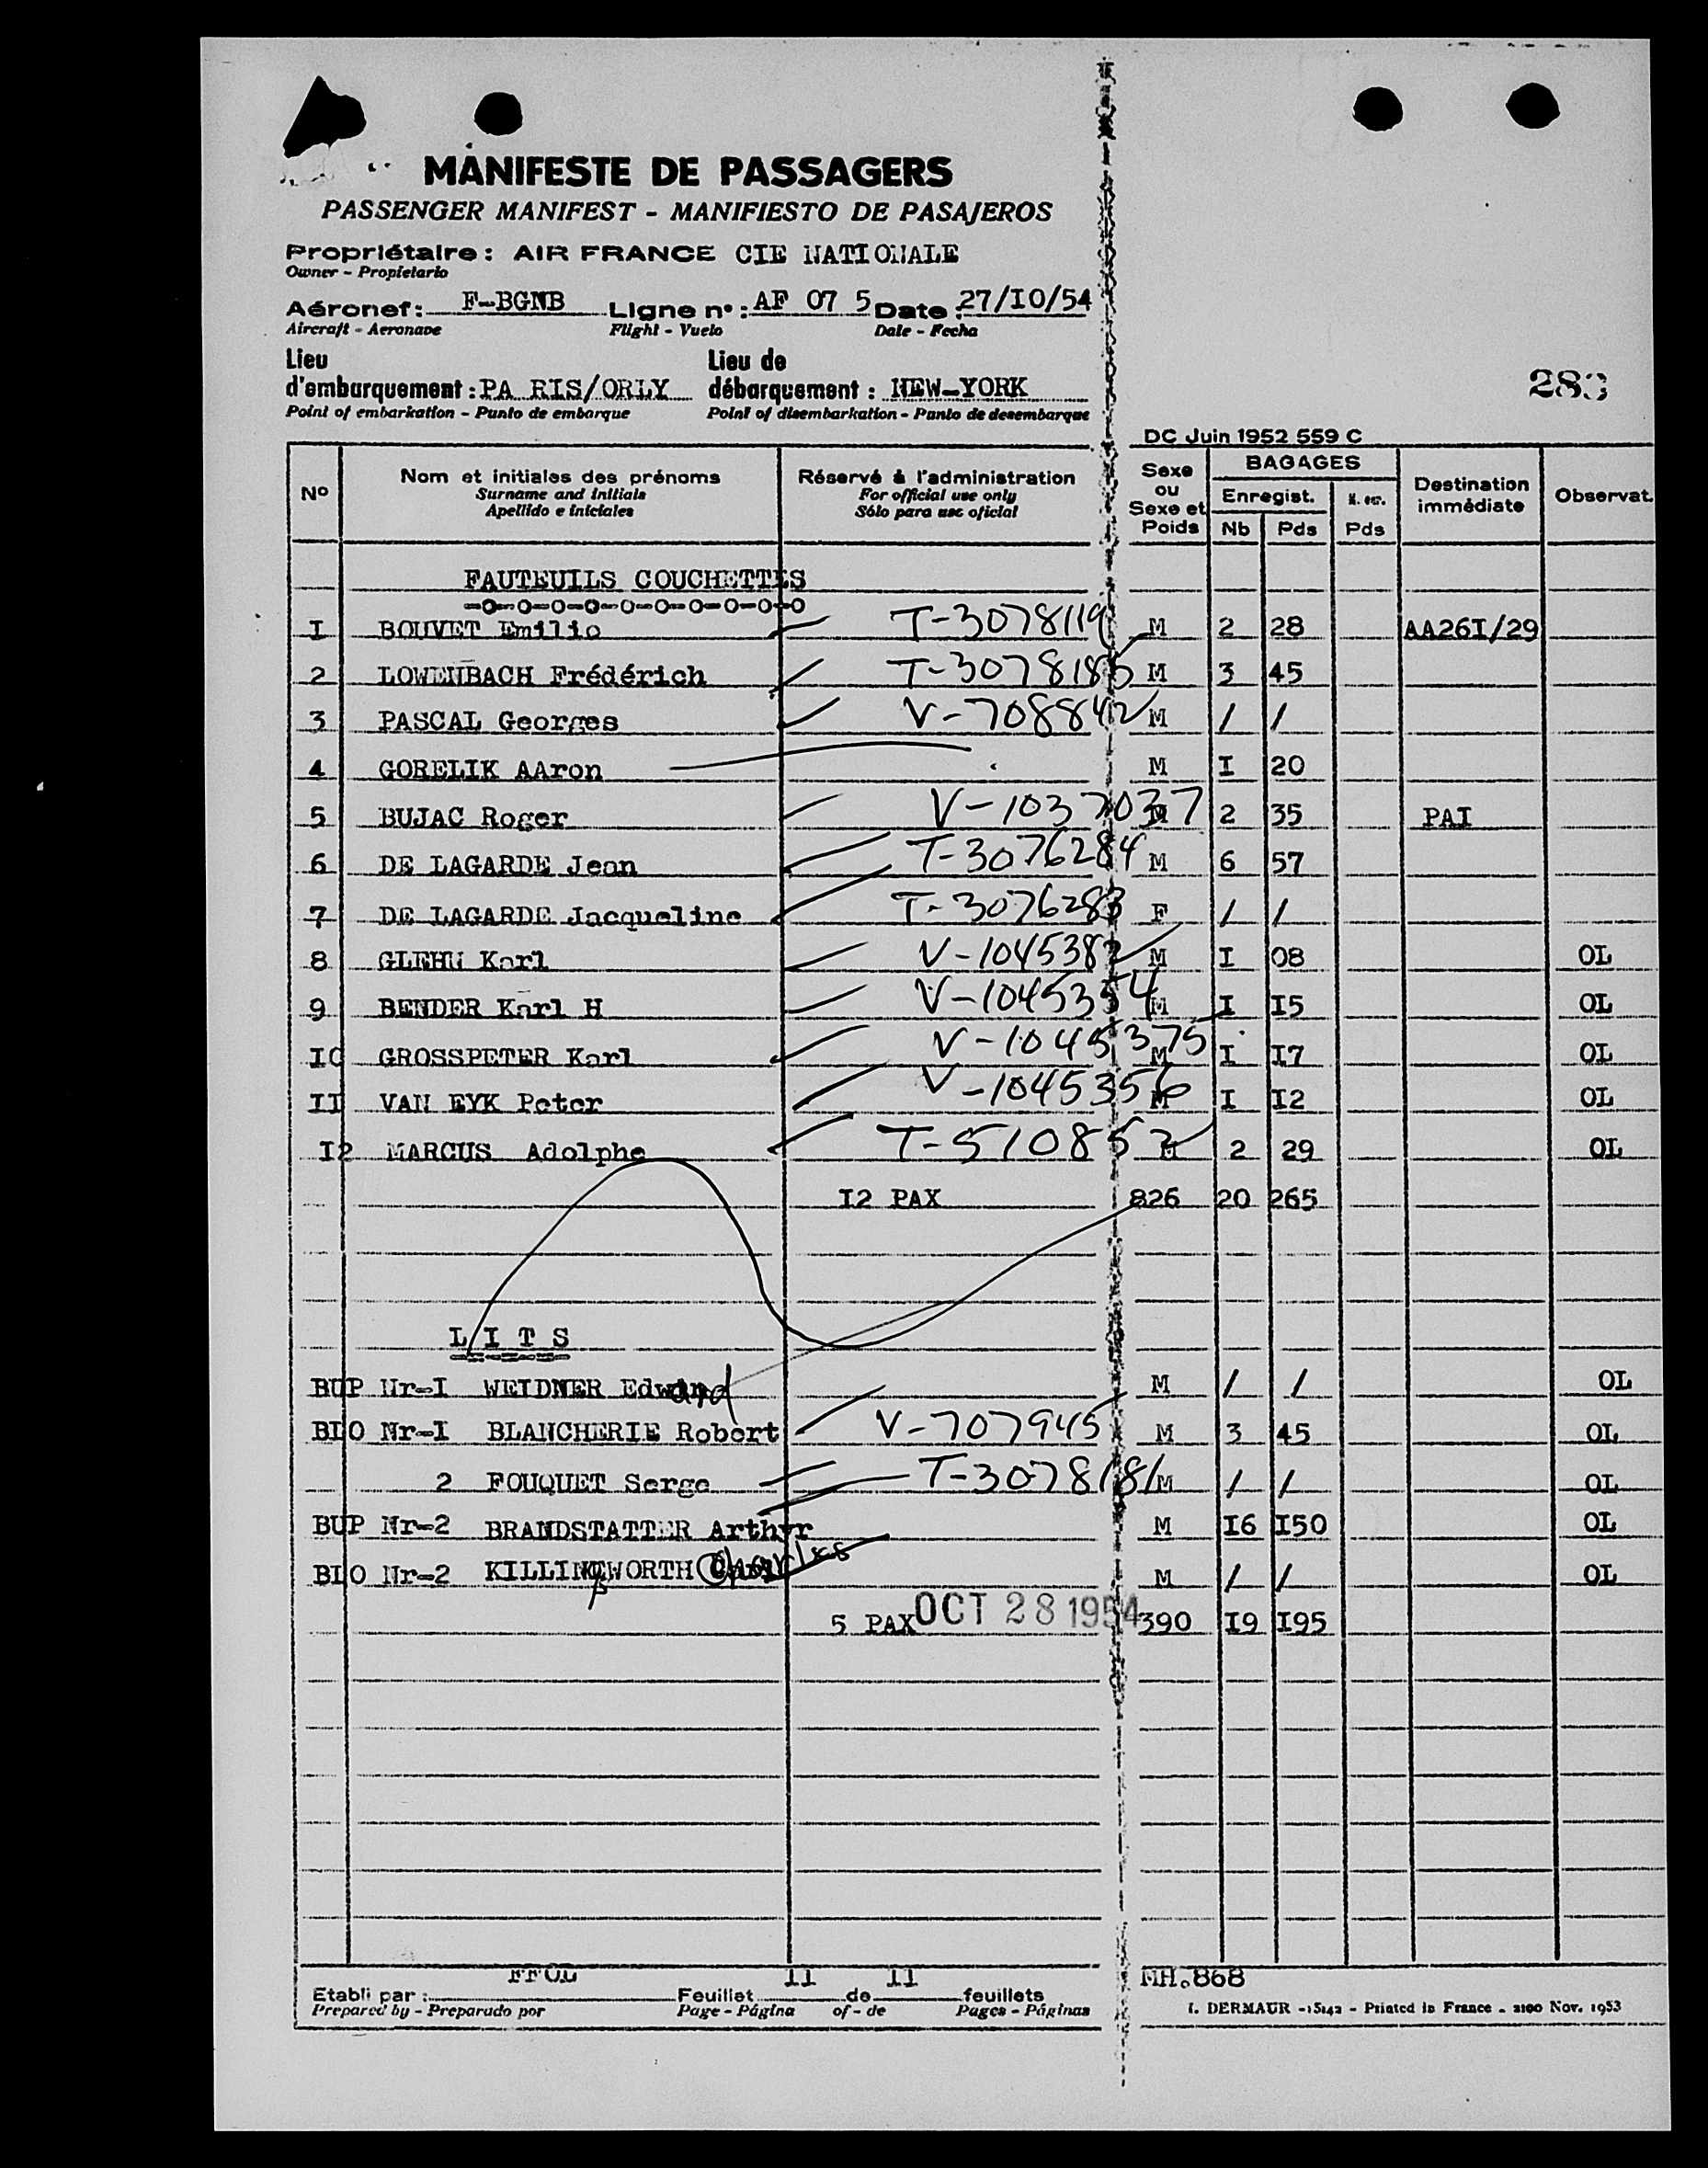 MANIFESTE DE PASSAGERS
PASSENGER MANIFEST - MANIFIESTO DE PASAJEROS
Propriétaire : AIR FRANCE CIE NATIONALE
Owner - Propietario
Aéronef : F-BGNB Ligne n° : AF 07 5 Date : 27/IO/54
Aircraft - Aeronave Flight - Vuelo Date - Fecha
Lieu Lieu de
d'embarquement : PA RIS/ORLY débarquement : NEW-YORK
Point of embarkation - Punto de embarque Point of disembarkation - Punto de desembarque
283
DC Juin 1952 559 C
N° Nom et initiales des prénoms Réservé à l'administration Sexe ou Sexe et Poids BAGAGES Destination immédiate Observat.
Surname and initials For official use only Enregist.
Apellido e iniciales Sólo para uso oficial Nb Pds Pds
FAUTEUILS COUCHETTES
=O=O=O=O=O=O=O=O=O=O
I BOUVET Emilio T-3078119 M 2 28 AA26I/29
2 LOWENBACH Frédérich T-3078185 M 3 45
3 PASCAL Georges V-708842 M / /
4 GORELIK AAron M I 20
5 BUJAC Roger V-1037037 M 2 35 PAI
6 DE LAGARDE Jean T-3076284 M 6 57
7 DE LAGARDE Jacqueline T-3076283 F / /
8 GLEHN Karl V-1045382 M I 08 OL
9 BENDER Karl H V-1045354 M I I5 OL
IO GROSSPETER Karl V-1045375 M I I7 OL
II VAN EYK Peter V-1045356 M I I2 OL
I2 MARCUS Adolphe T-510852 M 2 29 OL
I2 PAX 826 20 265
L I T S
BUP Nr-I WEIDNER Edward M / / OL
BLO Nr-I BLANCHERIE Robert V-707945 M 3 45 OL
2 FOUQUET Serge T-3078181 M / / OL
BUP Nr-2 BRANDSTATTER Arthyr M I6 I50 OL
BLO Nr-2 KILLINGWORTH Charles M / / OL
5 PAX OCT 28 1954 390 I9 I95
FFOL 11 11 MH.868
Etabli par : Feuillet de feuillets
Prepared by - Preparado por Page - Página of - de Pages - Páginas
I. DERMAUR - 15142 - Printed in France - 2100 Nov. 1953